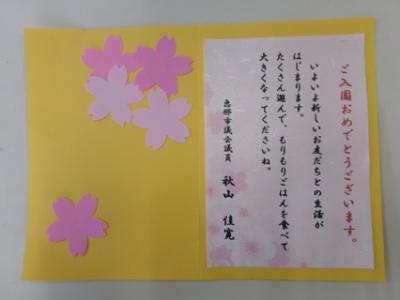 ご入園おめでとうございます。
いよいよ新しいお友だちとの生活が
はじまります。
たくさん遊んで、もりもりごはんを食べて
大きくなってくださいね。
恵那市議会議員 秋山 佳寛